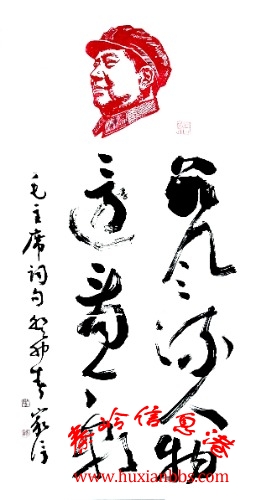 数风流人物
还看今朝
毛主席词句
秦岭信息港
www.huxianbbs.com